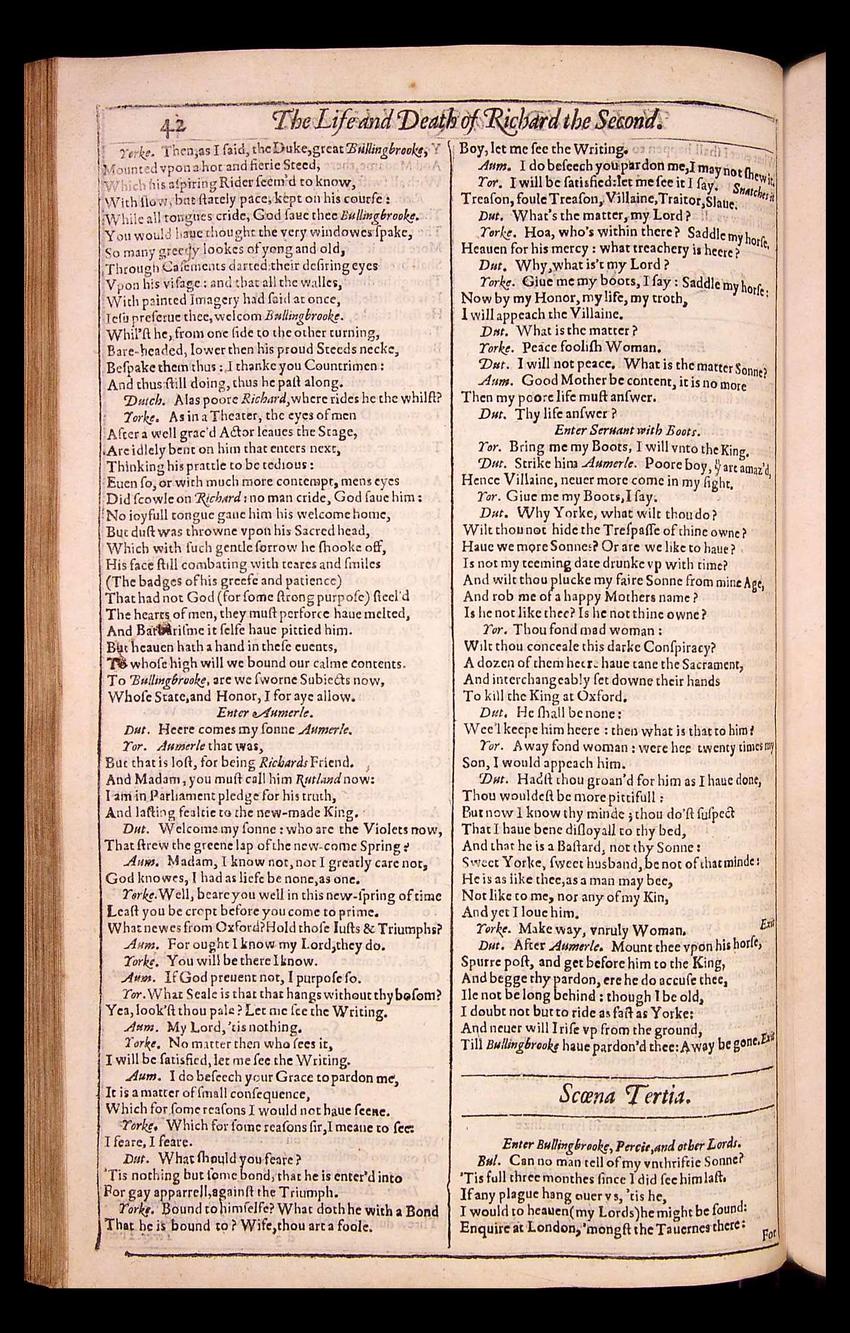 42
The Life and Death of Richard the Second.
Yorke. Then, as I ſaid, the Duke, great Bullingbrooke,
Mounted vpon a hot and fierie Steed,
Which his aſpiring Rider ſeem'd to know,
With ſlow, but ſtately pace, kept on his courſe :
While all tongues cride, God ſaue thee Bullingbrooke.
You would haue thought the very windowes ſpake,
So many greedy lookes of yong and old,
Through Caſements darted their deſiring eyes
Vpon his viſage : and that all the walles,
With painted Imagery had ſaid at once,
Ieſu preſerue thee, welcom Bullingbrooke.
Whil'ſt he, from one ſide to the other turning,
Bare-headed, lower then his proud Steeds necke,
Beſpake them thus : I thanke you Countrimen :
And thus ſtill doing, thus he paſt along.
Dutch. Alas poore Richard, where rides he the whilſt?
Yorke. As in a Theater, the eyes of men
After a well grac'd Actor leaues the Stage,
Are idlely bent on him that enters next,
Thinking his prattle to be tedious :
Euen ſo, or with much more contempt, mens eyes
Did ſcowle on Richard : no man cride, God ſaue him :
No ioyfull tongue gaue him his welcome home,
But duſt was throwne vpon his Sacred head,
Which with ſuch gentle ſorrow he ſhooke off,
His face ſtill combating with teares and ſmiles
(The badges of his greefe and patience)
That had not God (for ſome ſtrong purpoſe) ſteel'd
The hearts of men, they muſt perforce haue melted,
And Barbariſme it ſelfe haue pittied him.
But heauen hath a hand in theſe euents,
To whoſe high will we bound our calme contents.
To Bullingbrooke, are we ſworne Subiects now,
Whoſe State, and Honor, I for aye allow.
Enter Aumerle.
Dut. Heere comes my ſonne Aumerle.
Yor. Aumerle that was,
But that is loſt, for being Richards Friend.
And Madam, you muſt call him Rutland now:
I am in Parliament pledge for his truth,
And laſting fealtie to the new-made King.
Dut. Welcome my ſonne : who are the Violets now,
That ſtrew the greene lap of the new-come Spring?
Aum. Madam, I know not, nor I greatly care not,
God knowes, I had as liefe be none, as one.
Yorke. Well, beare you well in this new-ſpring of time
Leaſt you be cropt before you come to prime.
What newes from Oxford? Hold thoſe Iuſts & Triumphs?
Aum. For ought I know my Lord, they do.
Yorke. You will be there I know.
Aum. If God preuent not, I purpoſe ſo.
Yor. What Seale is that that hangs without thy boſom?
Yea, look'ſt thou pale? Let me ſee the Writing.
Aum. My Lord, 'tis nothing.
Yorke. No matter then who ſees it,
I will be ſatisfied, let me ſee the Writing.
Aum. I do beſeech your Grace to pardon me,
It is a matter of ſmall conſequence,
Which for ſome reaſons I would not haue ſeene.
Yorke. Which for ſome reaſons ſir, I meane to ſee:
I feare, I feare.
Dut. What ſhould you feare?
'Tis nothing but ſome bond, that he is enter'd into
For gay apparrell, againſt the Triumph.
Yorke. Bound to himſelfe? What doth he with a Bond
That he is bound to? Wife, thou art a foole.
Boy, let me ſee the Writing.
Aum. I do beſeech you pardon me, I may not ſhew it.
Yor. I will be ſatisfied: let me ſee it I ſay. Snatches it
Treaſon, foule Treaſon, Villaine, Traitor, Slaue.
Dut. What's the matter, my Lord?
Yorke. Hoa, who's within there? Saddle my horſe,
Heauen for his mercy : what treachery is heere?
Dut. Why, what is't my Lord?
Yorke. Giue me my boots, I ſay : Saddle my horſe :
Now by my Honor, my life, my troth,
I will appeach the Villaine.
Dut. What is the matter?
Yorke. Peace fooliſh Woman.
Dut. I will not peace. What is the matter Sonne?
Aum. Good Mother be content, it is no more
Then my poore life muſt anſwer.
Dut. Thy life anſwer?
Enter Seruant with Boots.
Yor. Bring me my Boots, I will vnto the King.
Dut. Strike him Aumerle. Poore boy, yu art amaz'd,
Hence Villaine, neuer more come in my ſight.
Yor. Giue me my Boots, I ſay.
Dut. Why Yorke, what wilt thou do?
Wilt thou not hide the Treſpaſſe of thine owne?
Haue we more Sonnes? Or are we like to haue?
Is not my teeming date drunke vp with time?
And wilt thou plucke my faire Sonne from mine Age,
And rob me of a happy Mothers name?
Is he not like thee? Is he not thine owne?
Yor. Thou fond mad woman :
Wilt thou conceale this darke Conſpiracy?
A dozen of them heere haue tane the Sacrament,
And interchangeably ſet downe their hands
To kill the King at Oxford.
Dut. He ſhall be none :
Wee'l keepe him heere : then what is that to him?
Yor. Away fond woman : were hee twenty times my
Son, I would appeach him.
Dut. Hadſt thou groan'd for him as I haue done,
Thou wouldeſt be more pittifull :
But now I know thy minde ; thou do'ſt ſuſpect
That I haue bene diſloyall to thy bed,
And that he is a Baſtard, not thy Sonne :
Sweet Yorke, ſweet husband, be not of that minde :
He is as like thee, as a man may bee,
Not like to me, nor any of my Kin,
And yet I loue him.
Yorke. Make way, vnruly Woman. Exit
Dut. After Aumerle. Mount thee vpon his horſe,
Spurre poſt, and get before him to the King,
And begge thy pardon, ere he do accuſe thee,
Ile not be long behind : though I be old,
I doubt not but to ride as faſt as Yorke:
And neuer will I riſe vp from the ground,
Till Bullingbrooke haue pardon'd thee: Away be gone. Exit
Scœna Tertia.
Enter Bullingbrooke, Percie, and other Lords.
Bul. Can no man tell of my vnthriftie Sonne?
'Tis full three monthes ſince I did ſee him laſt.
If any plague hang ouer vs, 'tis he,
I would to heauen (my Lords) he might be found :
Enquire at London, 'mongſt the Tauernes there :
For